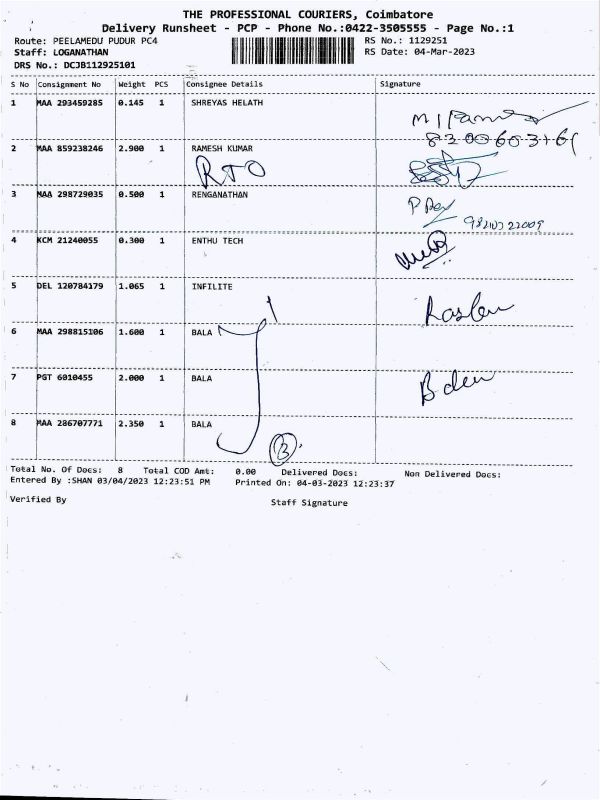 THE PROFESSIONAL COURIERS, Coimbatore
Delivery Runsheet - PCP - Phone No.:0422-3505555 - Page No.:1
Route: PEELAMEDU PUDUR PC4 RS No.: 1129251
Staff: LOGANATHAN RS Date: 04-Mar-2023
DRS No.: DCJB112925101
S No Consignment No Weight PCS Consignee Details Signature
1 MAA 293459285 0.145 1 SHREYAS HELATH
2 MAA 859238246 2.900 1 RAMESH KUMAR
RTO
3 MAA 298729035 0.500 1 RENGANATHAN
4 KCM 21240055 0.300 1 ENTHU TECH
5 DEL 120784179 1.065 1 INFILITE
6 MAA 298815106 1.600 1 BALA
7 PGT 6010455 2.000 1 BALA
8 MAA 286707771 2.350 1 BALA
3
Total No. Of Docs: 8 Total COD Amt: 0.00 Delivered Docs: Non Delivered Docs:
Entered By :SHAN 03/04/2023 12:23:51 PM Printed On: 04-03-2023 12:23:37
Verified By Staff Signature